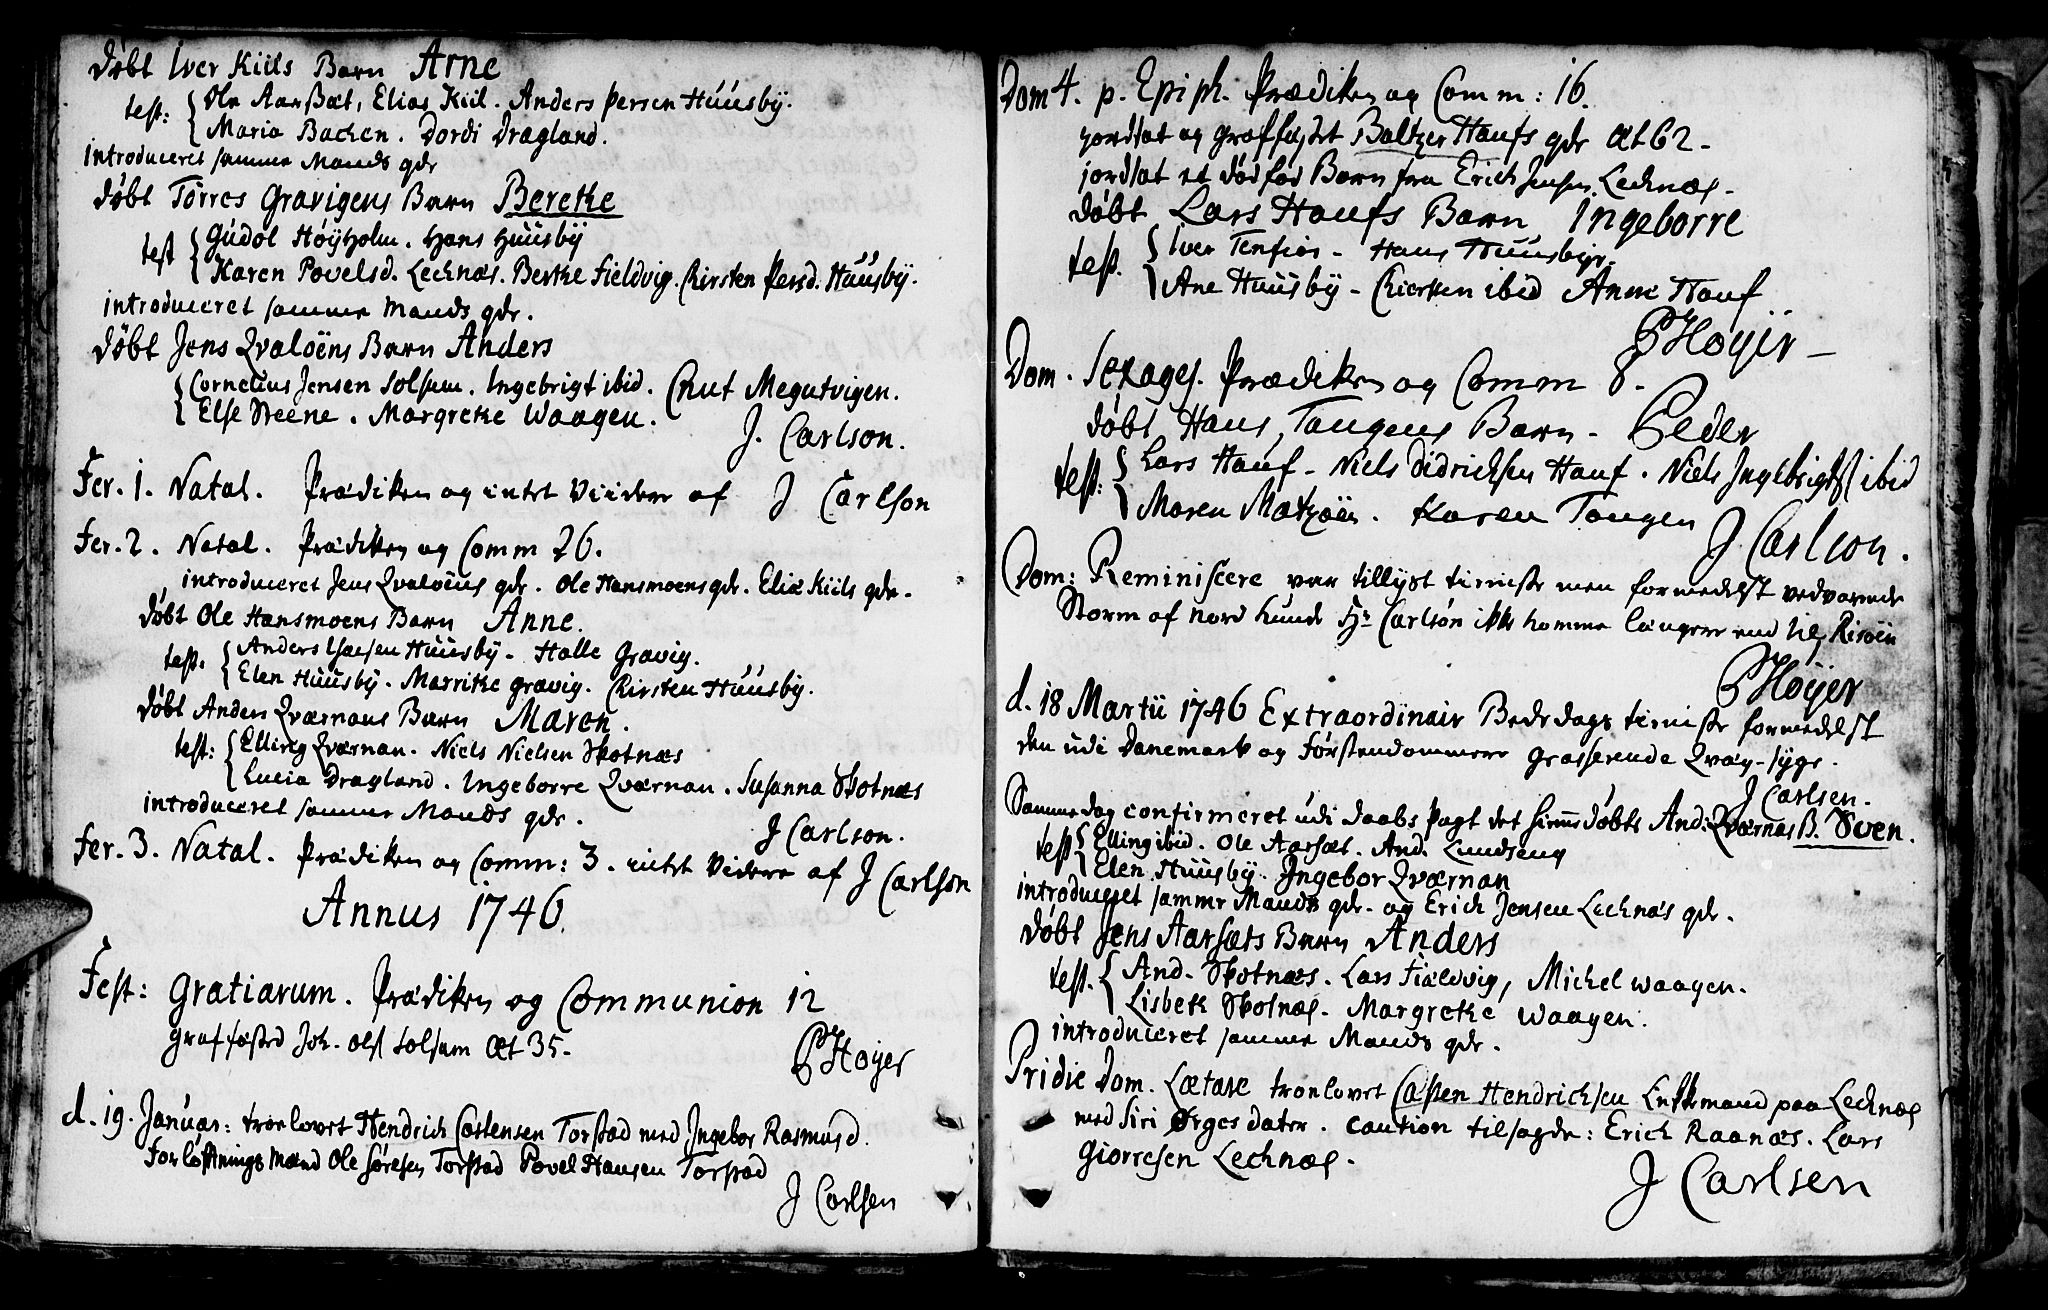 døbt Iver Kiils Barn Arne
test: Ole Aarsæt, Elias Kiil. Anders Persen Huusbÿ.
Maria Bachen. Dordi Dragland.
introduceret samme Mands qde
døbt Tørres Gravigens Barn Beretke
test Gudol Høÿholm. Hans Huusbÿ
Karen Povelsd. Lecknæs. Beretke Fieldvig. Kirsten Persd. Huusbÿ.
introduceret samme Mands qde.
døbt Jens Qvaløens Barn Anders
Cornelius Jensen Solsem. Ingebrigt ibid. Cnut Megutvigen.
Else Steene. Margretke Waagen.
J. Carlson.
Fer. 1. Natal. Prædiken og intet Viidere af J Carlson
Fer. 2. Natal. Prædiken og Comm 26.
introduceret Jens Qvaløens qde. Ole Hansmoens qde. Eliæ Kiils qde.
døbt Ole Hansmoens Barn Anne.
test. Anders Huusbÿ. Halle Gravig.
Elen Huusbÿ. Marritke Gravig. Kirsten Huusbÿ.
døbt Anders Qværnans Barn Maren.
test: Elling Qværnan. Niels Nielsen Skotnæs
Lucia Dragland. Ingeborre Qværnan. Susanna Skotnæs
introduceret samme Mands qde.
J Carlson.
Fer. 3. Natal. Prædiken og Comm: 3. intet Videre af J Carlson
Annus 1746.
Fest: Gratiarum. Prædiken og Communion 12
Graffæsted Joh. Ols Solsem Æt 35.
PHøyer
d. 19. Januar: troelovet Hendrich Castensen Torstad med Ingebor Rasmusd.
Forløftnings Mænd Ole Sørensen Torstad Povel Hansen Torstad
J Carlsen
Dom 4. p. Epiph. Prædiken og Comm: 16.
jordsat og graffæstet Baltzer Haufs qde Æt 62.
jordsat et dødfød Barn fra Erich Jensen Lecknæs.
døbt Lars Haufs Barn Ingeborre
test. Iver Tenfiør. Hans Huusbÿe.
Ane Huusbÿ. Kiersten ibid Anne Hauf
PHøyer
Dom. Sexages. Prædiken og Comm 8.
døbt Hans Tangens Barn. Peder
test: Lars Hauf. Niels Didrichsen Hauf. Niels Ingebrigts ibid
Maren Matzøen. Karen Tangen
J Carlson.
Dom: Reminiscere var tillyst tieniste men formedelst vedvarende
Storm af Nord kunde Hr Carlsøn ikke komme længere end til Risøen
PHøyer
d. 18 Martii 1746 Extraordinair Bededags tieniste formedelst
den udi Danemark og Førstendommene grasserende Qvæg-syge.
J Carlsen.
Samme dag confirmeret udi daabs Pagt det hiemedøbte And: Qværnæs B. Sven.
test Elling ibid. Ole Aarsæt. And. Lundseng
Elen Huusbÿ. Ingebor Qværnan
introduceret samme Mands qde. og Erich Jensen Lecknæs qde.
døbt Jens Aarsæts Barn Anders
test. And. Skotnæs. Lars Fieldvig, Michel Waagen.
Lisbetk Skotnæs. Margretke Waagen.
introduceret samme Mands qde.
Pridie Dom. Lætare troelovet Casten Hendrichsen paa Lecknæs
med Siri Ørges datter. caution tilsagde: Erich Raanæs. Lars
Giørresen Lecknæs.
J Carlsen